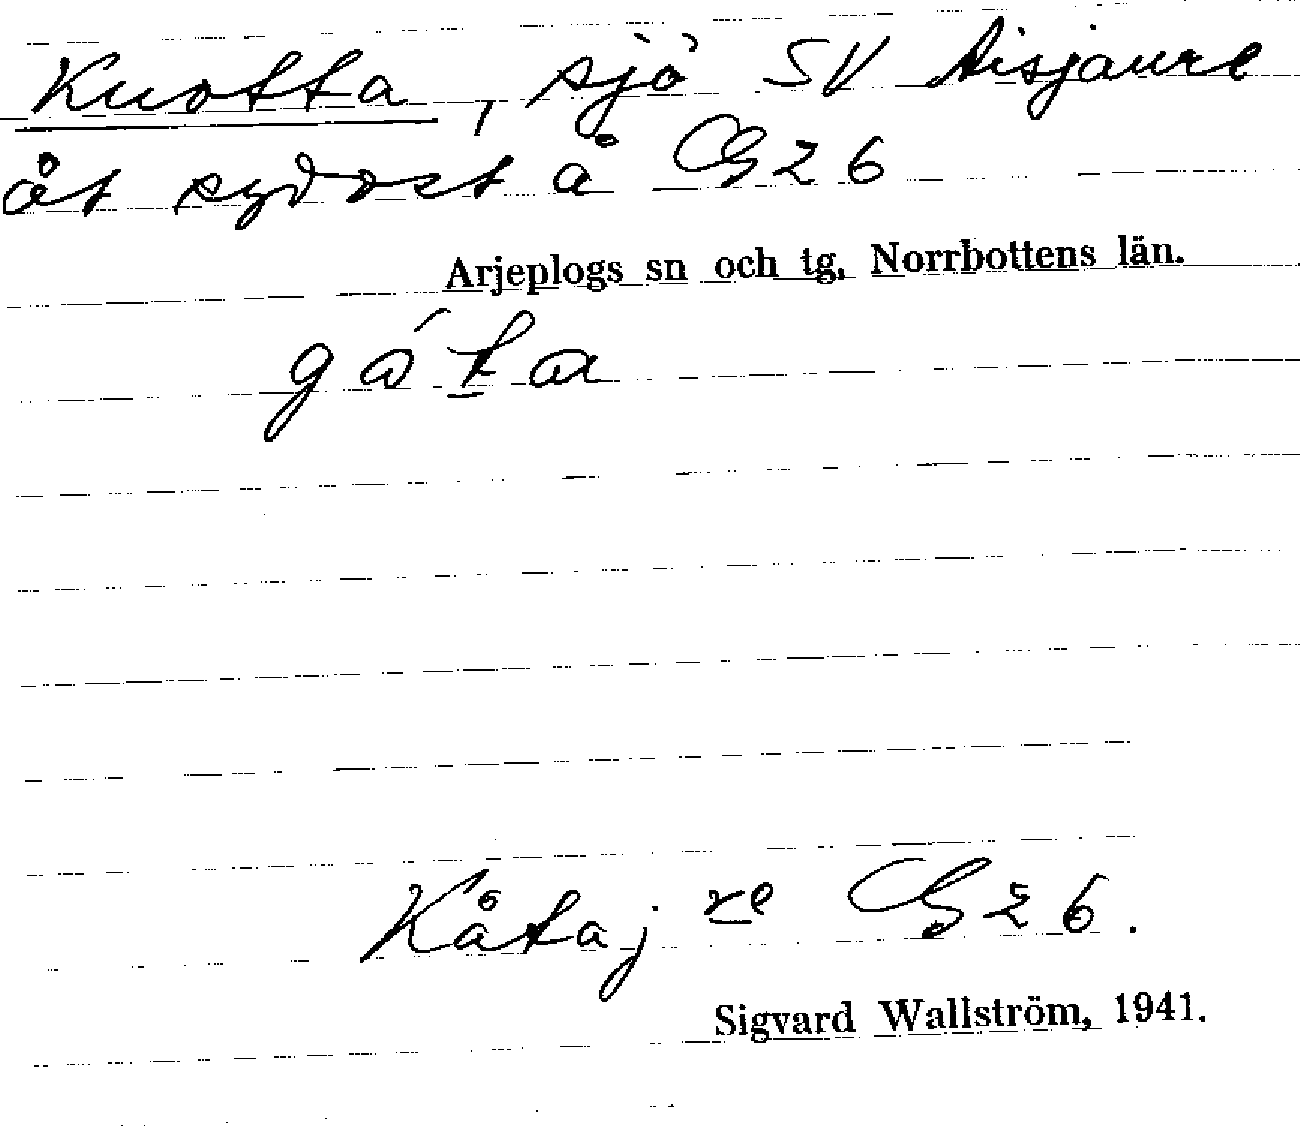 Kuotta, sjö SV Aisjaure
åt sydost å G 26
Arjeplogs sn och tg. Norrbottens län.
Kåtaj re G 26.
Sigvard Wallström, 1941.